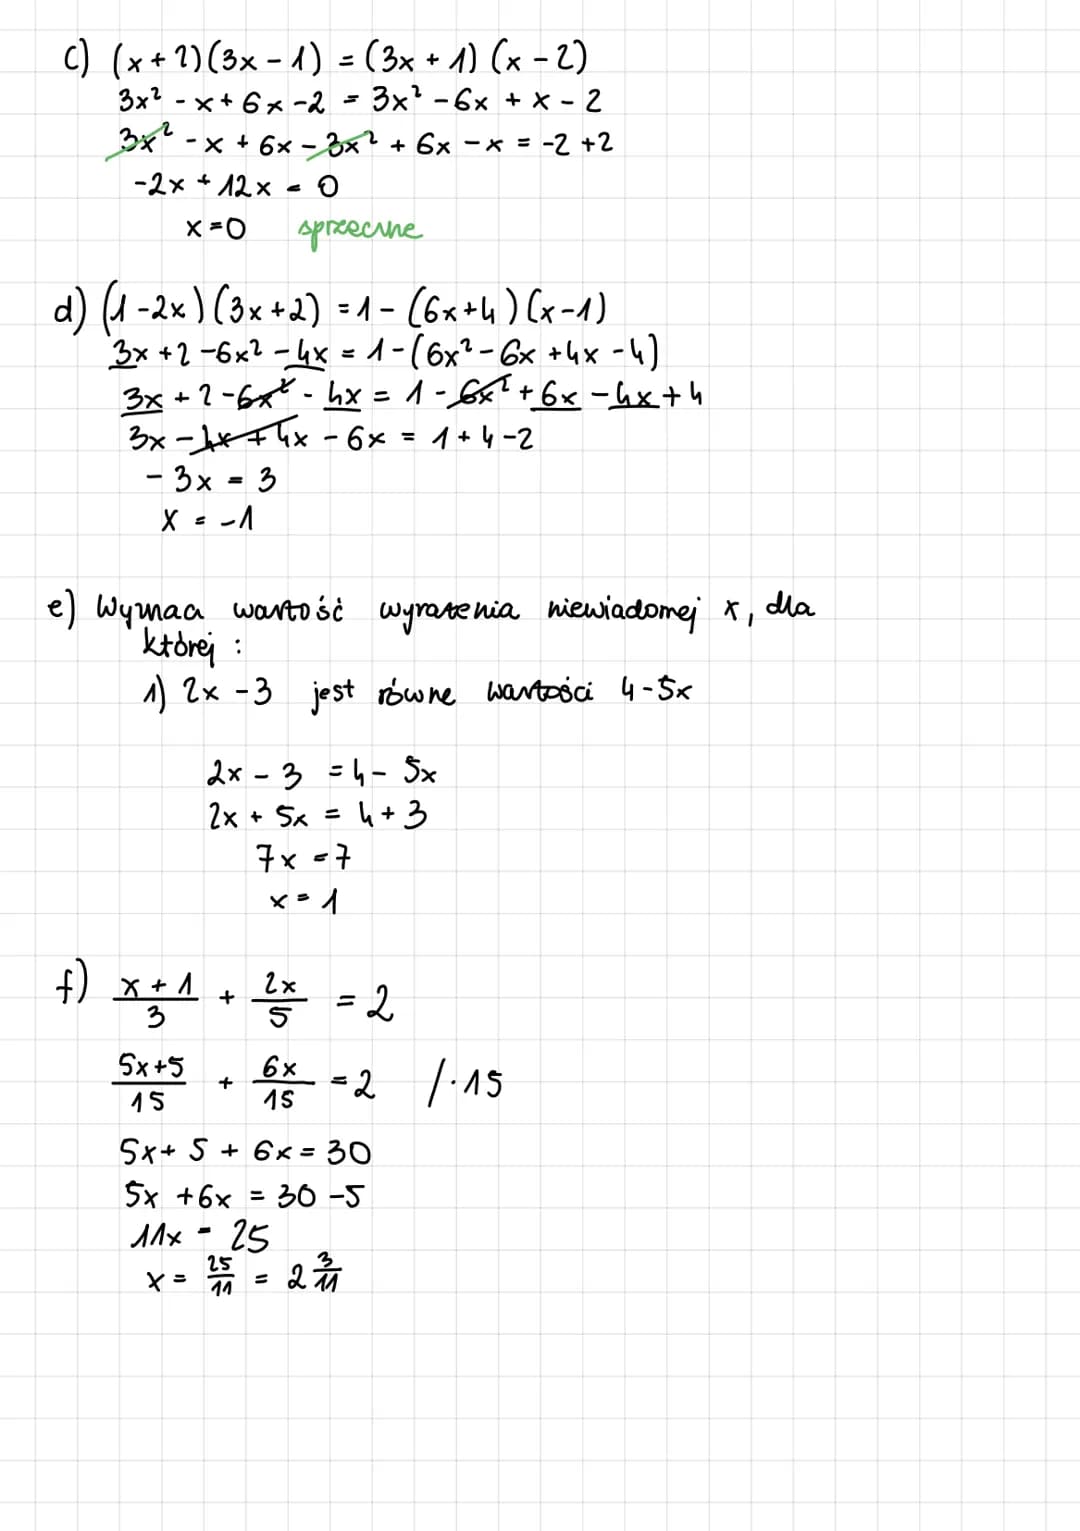 c) (x+2)(3x-1) = (3x+1)(x-2)
3x² - x + 6x - 2 = 3x² - 6x + x - 2
3x² - x + 6x - 3x² + 6x - x = -2 + 2
-2x + 12x = 0
x = 0 sprzeczne
d) (1-2x)(3x+2) = 1 - (6x+4)(x-1)
3x + 2 - 6x² - 4x = 1 - (6x² - 6x + 4x - 4)
3x + 2 - 6x² - 4x = 1 - 6x² + 6x - 4x + 4
3x - 4x + 4x - 6x = 1 + 4 - 2
-3x = 3
x = -1
e) Wyznacz wartość wyrażenia niewiadomej x, dla
której :
1) 2x - 3 jest równe wartości 4 - 5x
2x - 3 = 4 - 5x
2x + 5x = 4 + 3
7x = 7
x = 1
f) \frac{x+1}{3} + \frac{2x}{5} = 2
\frac{5x+5}{15} + \frac{6x}{15} = 2 /·15
5x + 5 + 6x = 30
5x + 6x = 30 - 5
11x = 25
x = \frac{25}{11} = 2\frac{3}{11}